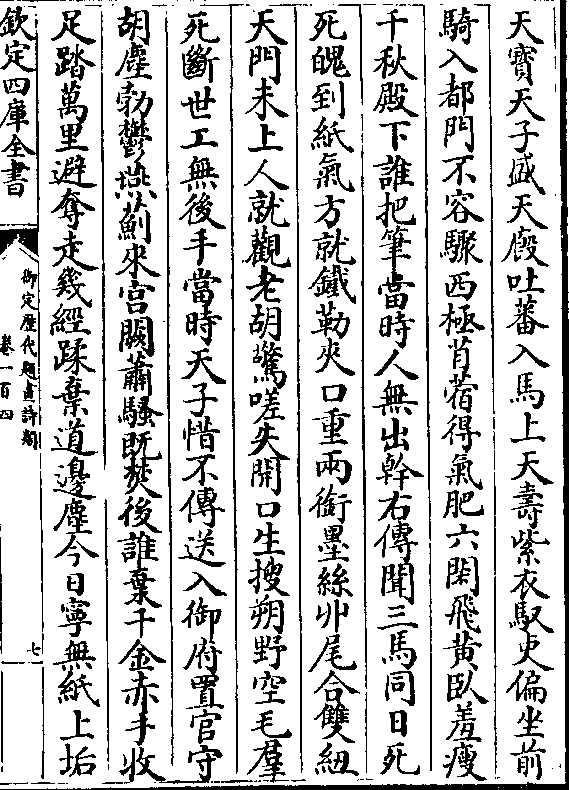 天寶天子盛天廐吐蕃入馬上天壽紫衣馭吏偏坐前
騎入都門不容驟西極苜蓿得氣肥六閑飛黃臥羞瘦
千秋殿下誰把筆當時人無出幹右傳聞三馬同日死
死魄到紙氣方就鐵勒夾口重兩銜墨絲丱尾合雙紐
天門未上人就觀老胡驚嗟失開口生搜朔野空毛羣
死斷世工無後手當時天子惜不傳送入御府置官守
胡塵勃鬱燕薊來宮闕蕭騷既焚後誰棄千金赤手收
足踏萬里避奪走幾經蹂棄道邊塵今日寧無紙上垢
欽定四庫全書
御定歴代題畫詩類
卷一百四
七